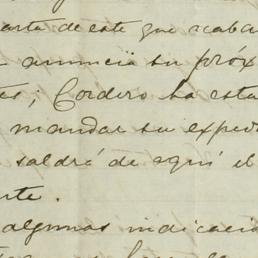 carta de este que acaba
anuncia su próx
tes; Cordero ha esta
mandar su exped
saldrá de aquí el
arte.
algunas indicacio